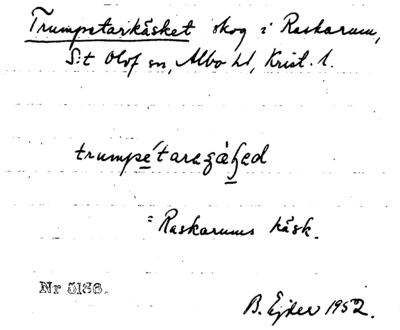 Trumpetarikäsket skog i Raskarum,
S:t Olof sn, Albo hd, Krist. l.
trumpétaragáʃed
= Raskarums käsk.
Nr 5136.
B. Ejder 1952.